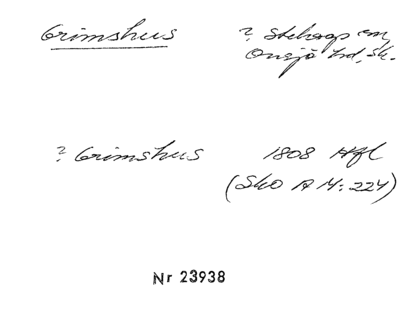 Grimshus ? Stehag sn,
Onsjö hd, Sk.
? Grimshus 1808 Hfl
(Sko A 14:224)
Nr 23938